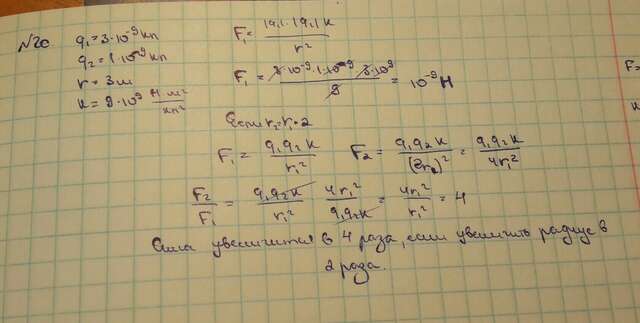 N20.
q₁ = 3·10⁻⁹ кл
q₂ = 1·10⁻⁹ кл
r = 3 м
k = 9·10⁹ Н м²/кл²
F₁ = |q₁|·|q₂| k / r²
F₁ = 3·10⁻⁹·1·10⁻⁹·9·10⁹ / 9 = 10⁻⁹ Н
Если r₂ = r₁·2
F₁ = q₁q₂k / r₁² F₂ = q₁q₂k / (2r₁)² = q₁q₂k / 4r₁²
F₂/F₁ = q₁q₂k / r₁² · 4r₁² / q₁q₂k = 4r₁² / r₁² = 4
Сила увеличится в 4 раза, если увеличить радиус в
2 раза.
F=